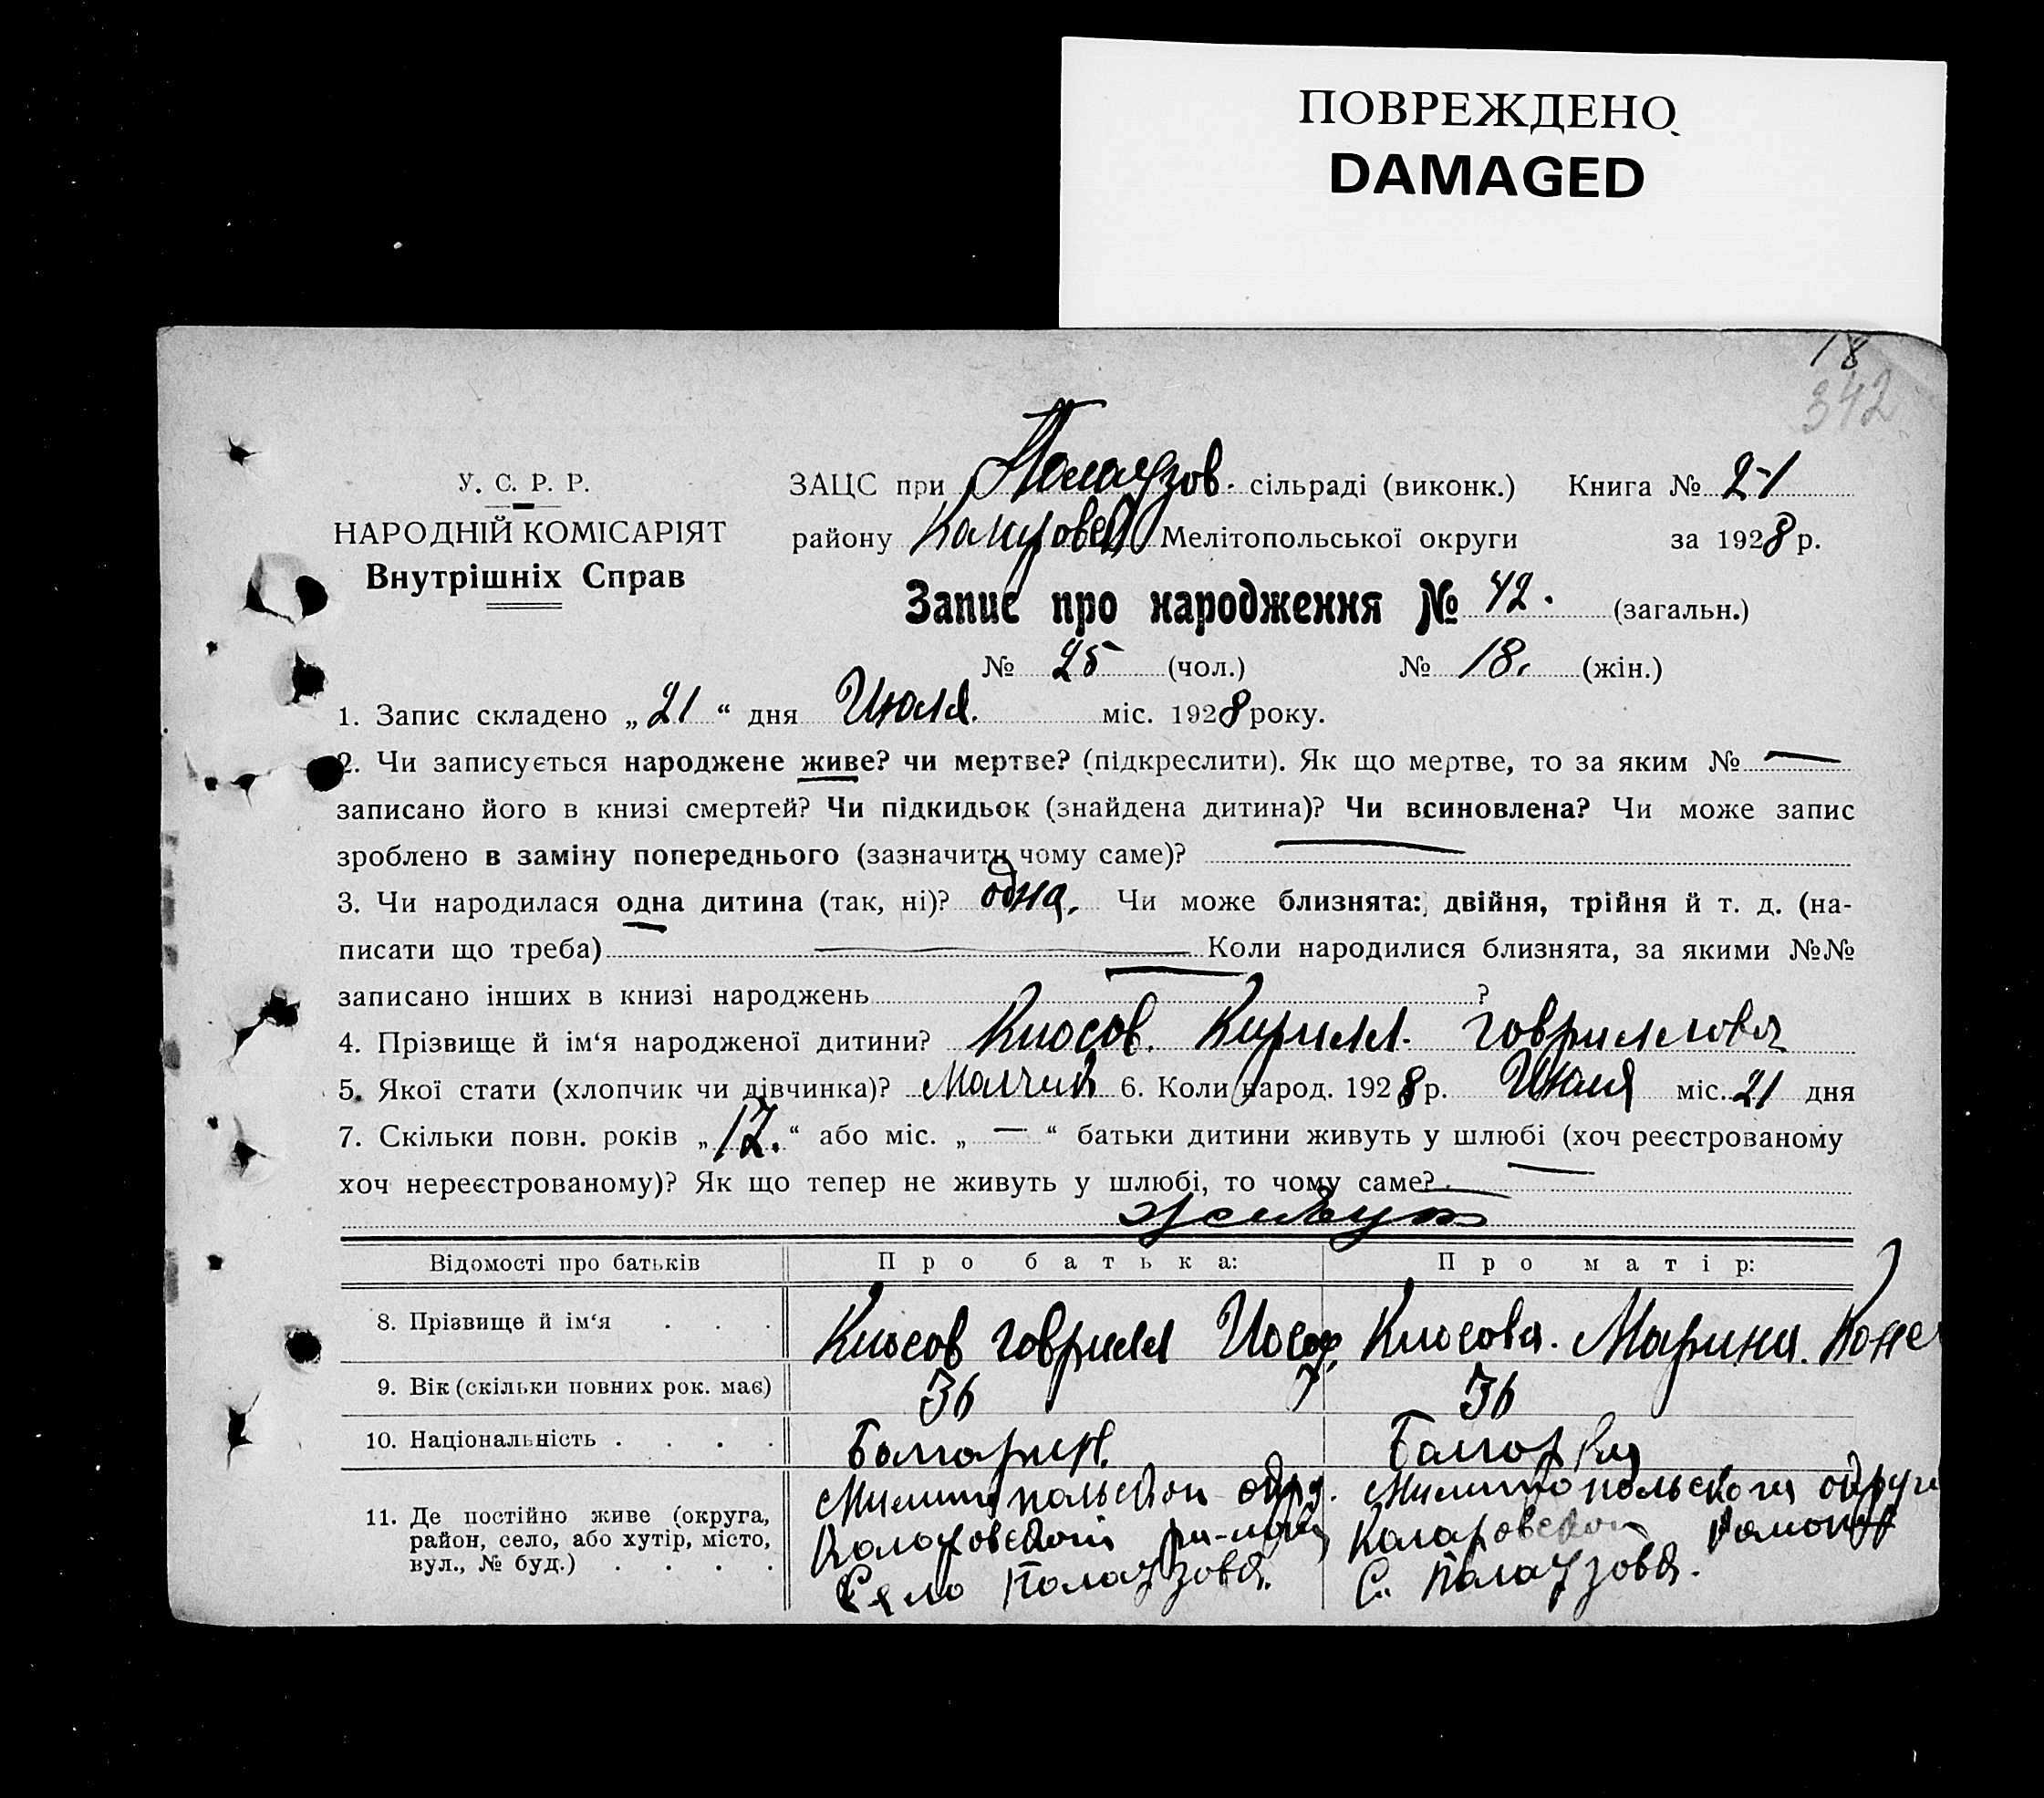 ПОВРЕЖДЕНО
DAMAGED
18
342
У. С. Р. Р.
НАРОДНІЙ КОМІСАРІЯТ
Внутрішніх Справ
ЗАЦС при Палаузов. сільраді (виконк.) Книга № 2-1
району Мелітопольської округи за 1928 р.
Запис про народження № 42. (загальн.)
№ 25 (чол.) № 18. (жін.)
1. Запис складено „21“ дня Июля. міс. 1928 року.
2. Чи записується народжене живе? чи мертве? (підкреслити). Як що мертве, то за яким № —
записано його в книзі смертей? Чи підкидьок (знайдена дитина)? Чи всиновлена? Чи може запис
зроблено в заміну попереднього (зазначити чому саме)? —
3. Чи народилася одна дитина (так, ні)? одна. Чи може близнята: двійня, трійня й т. д. (на-
писати що треба) — Коли народилися близнята, за якими №№
записано інших в книзі народжень — ?
4. Прізвище й ім‘я народженої дитини? Кюсов. Кирилл. Говриллова
5. Якої стати (хлопчик чи дівчинка)? 6. Коли народ. 1928 р. Июля міс. 21 дня
7. Скільки повн. років „12.“ або міс. „—“ батьки дитини живуть у шлюбі (хоч реєстрованому
хоч нереєстрованому)? Як що тепер не живуть у шлюбі, то чому саме? —
живут
Відомості про батьків Про батька: Про матір:
8. Прізвище й ім‘я . . . Кюсов Говрилл Иосиф. Кюсова. Марина.
9. Вік (скільки повних рок. має) 36 36
10. Національність . . . . Болгарин. Болгорка
11. Де постійно живе (округа,
район, село, або хутір, місто,
вул., № буд.) . . . .
Милитопольской окру. Милитопольскога округа
Коларовской ра-на Коларовской
Село Палаузова. С. Палаузова.